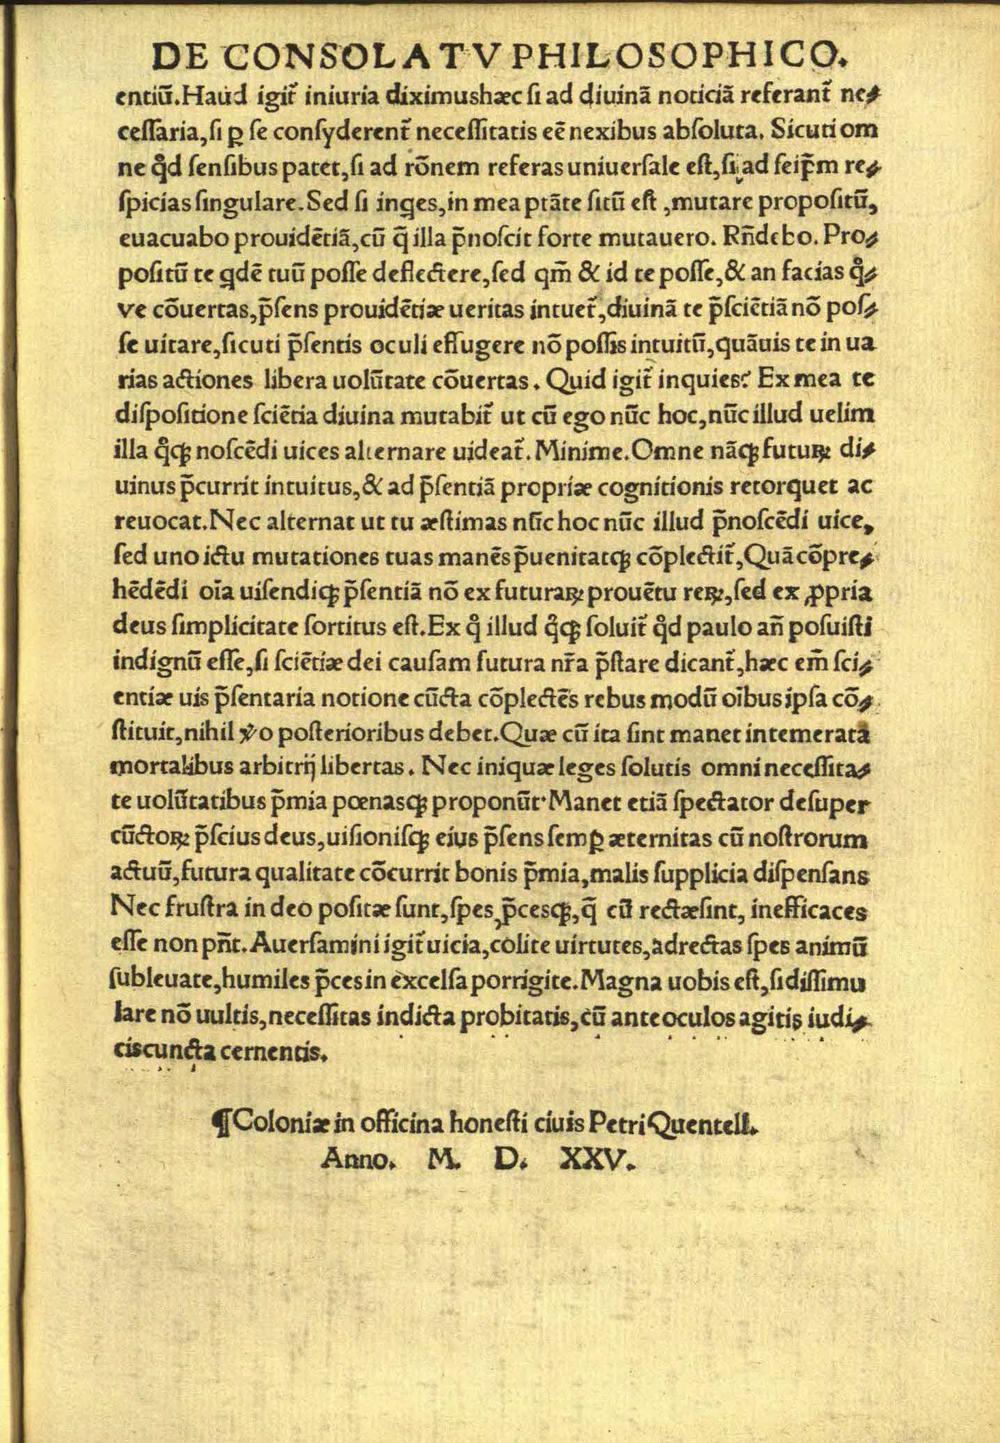 DE CONSOLATV PHILOSOPHICO.
entiū. Haud igit̄ iniuria diximus hæc ſi ad diuinā noticiā referant̄ ne⸗
ceſſaria, ſi ꝑ ſe conſyderent̄ neceſſitatis eē nexibus abſoluta. Sicuti om
ne qd̄ ſenſibus patet, ſi ad rōnem referas uniuerſale eſt, ſi ad ſeip̄m re⸗
ſpicias ſingulare. Sed ſi inqͥes, in mea ptāte ſitū eſt, mutare propoſitū,
euacuabo prouidētiā, cū q̄ illa p̄noſcit forte mutauero. Rn̄debo. Pro⸗
poſitū te qͥdē tuū poſſe deflectere, ſed qm̄ & id te poſſe, & an facias qͦ⸗
ve cōuertas, p̄ſens prouidētiæ ueritas intuet̄, diuinā te p̄ſciētiā nō poſ⸗
ſe uitare, ſicuti p̄ſentis oculi effugere nō poſſis intuitū, quāuis te in ua
rias actiones libera uolūtate cōuertas. Quid igit̄ inquies? Ex mea te
diſpoſitione ſciētia diuina mutabit̄ ut cū ego nūc hoc, nūc illud uelim
illa qͦqꝫ noſcēdi uices alternare uideat̄. Minime. Omne nāqꝫ futuꝝ di⸗
uinus p̄currit intuitus, & ad p̄ſentiā propriæ cognitionis retorquet ac
reuocat. Nec alternat ut tu æſtimas nūc hoc nūc illud p̄noſcēdi uice,
ſed uno ictu mutationes tuas manēs p̄uenit atqꝫ cōplectit̄, Quā cōpre⸗
hēdēdi oīa uiſendiqꝫ p̄ſentiā nō ex futuraꝝ prouētu reꝝ, ſed ex ꝓpria
deus ſimplicitate ſortitus eſt. Ex qͦ illud qͦqꝫ ſoluit̄ qd̄ paulo an̄ poſuiſti
indignū eſſe, ſi ſciētiæ dei cauſam futura nr̄a p̄ſtare dicant̄, hæc em̄ ſci⸗
entiæ uis p̄ſentaria notione cūcta cōplectēs rebus modū oībus ipſa cō⸗
ſtituit, nihil v̄o poſterioribus debet. Quæ cū ita ſint manet intemerata
mortalibus arbitrij libertas. Nec iniquæ leges ſolutis omni neceſſita⸗
te uolūtatibus p̄mia pœnasqꝫ proponūt. Manet etiā ſpectator deſuper
cūctoꝝ p̄ſcius deus, uiſioniſqꝫ ejus p̄ſens ſemꝑ æternitas cū noſtrorum
actuū, futura qualitate cōcurrit bonis p̄mia, malis ſupplicia diſpenſans
Nec fruſtra in deo poſitæ ſunt, ſpes p̄cesqꝫ, q̄ cū rectæ ſint, inefficaces
eſſe non pn̄t. Auerſamini igit̄ uicia, colite uirtutes, ad rectas ſpes animū
ſubleuate, humiles p̄ces in excelſa porrigite. Magna uobis eſt, ſi diſſimu
lare nō uultis, neceſſitas indicta probitatis, cū ante oculos agitis iudi⸗
cis cuncta cernentis.
¶ Coloniæ in officina honeſti ciuis Petri Quentell.
Anno. M. D. XXV.